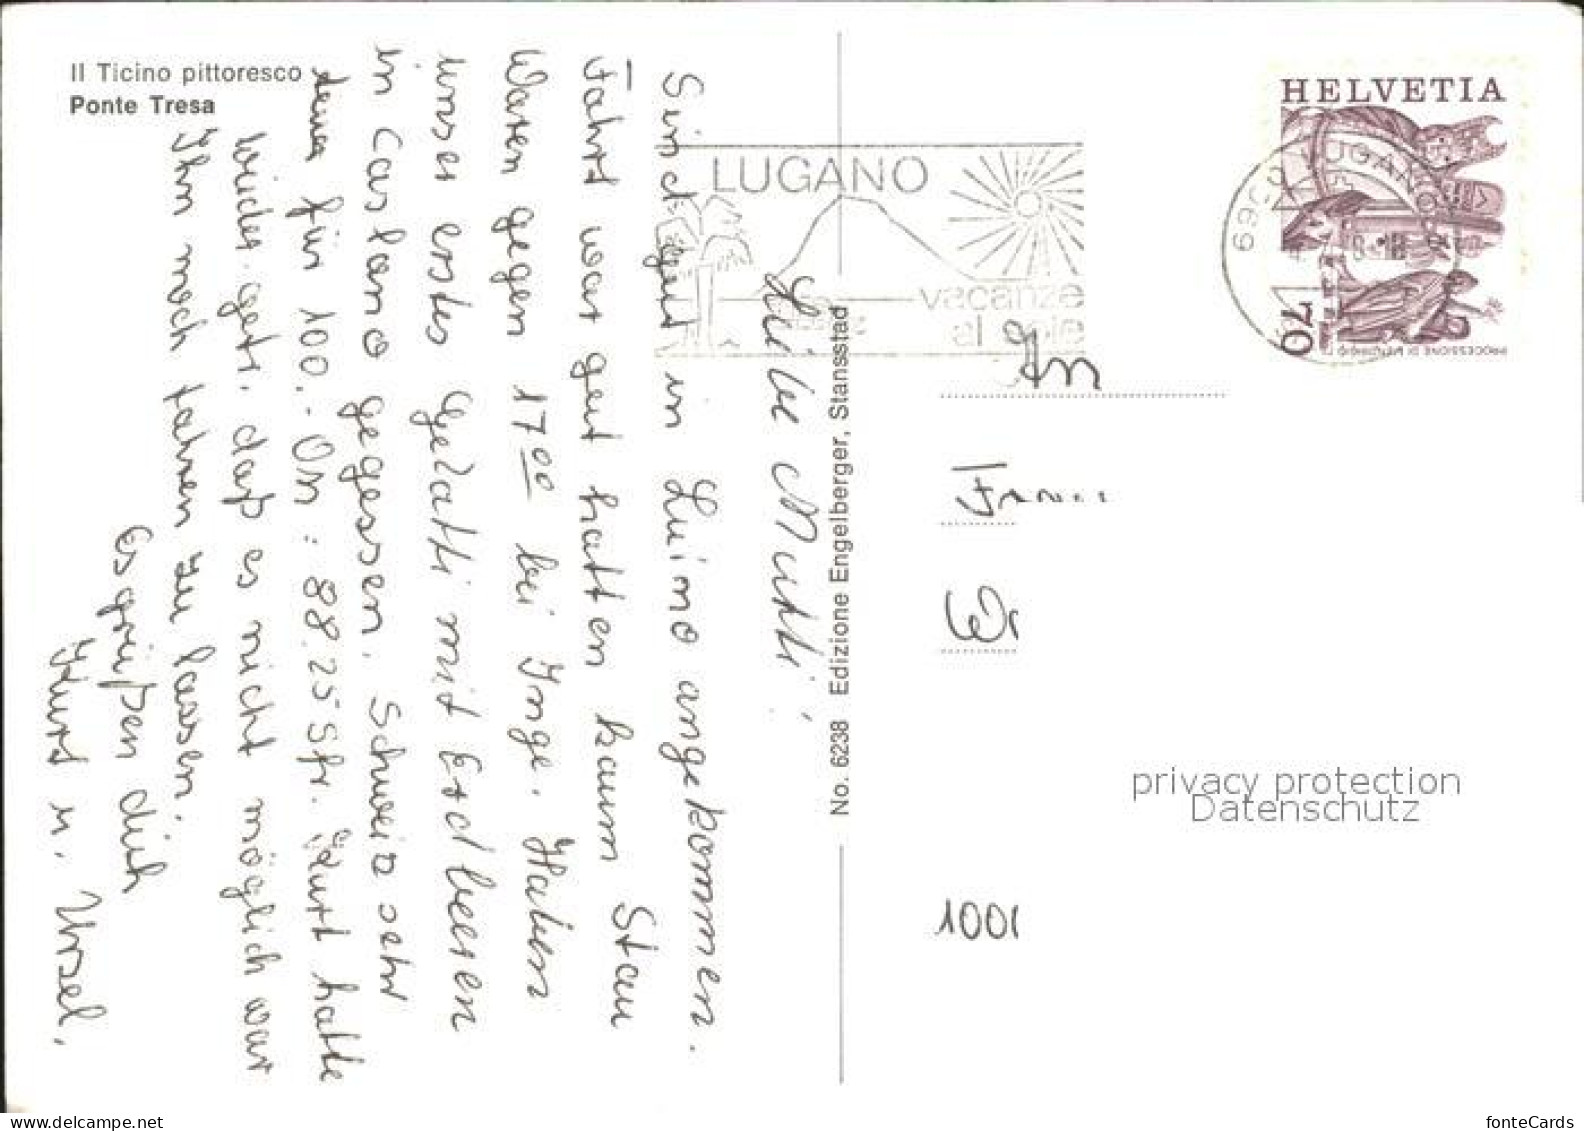 Il Ticino pittoresco
Ponte Tresa
Liebe Mutti!
Sind gut in Luino angekommen.
Fahrt war gut hatten kaum Stau
Waren gegen 17 00 bei Inge. Haben
unser erstes Gelatti mit Erdbeeren
in Caslano gegessen. Schweiz sehr
teuer für 100.- DM: 88.25 Sfr. Kurt hatte
wieder get. daß es nicht möglich war
Ihn noch fahren zu lassen.
Es grüßen dich
Kurt u. Ursel.
No. 6238 Edizione Engelberger, Stansstad
LUGANO
vacanze
HELVETIA
70
PROCESSIONE DI MENDRISIO TI
6900 LUGANO
An
privacy protection
Datenschutz
1001
fonteCards